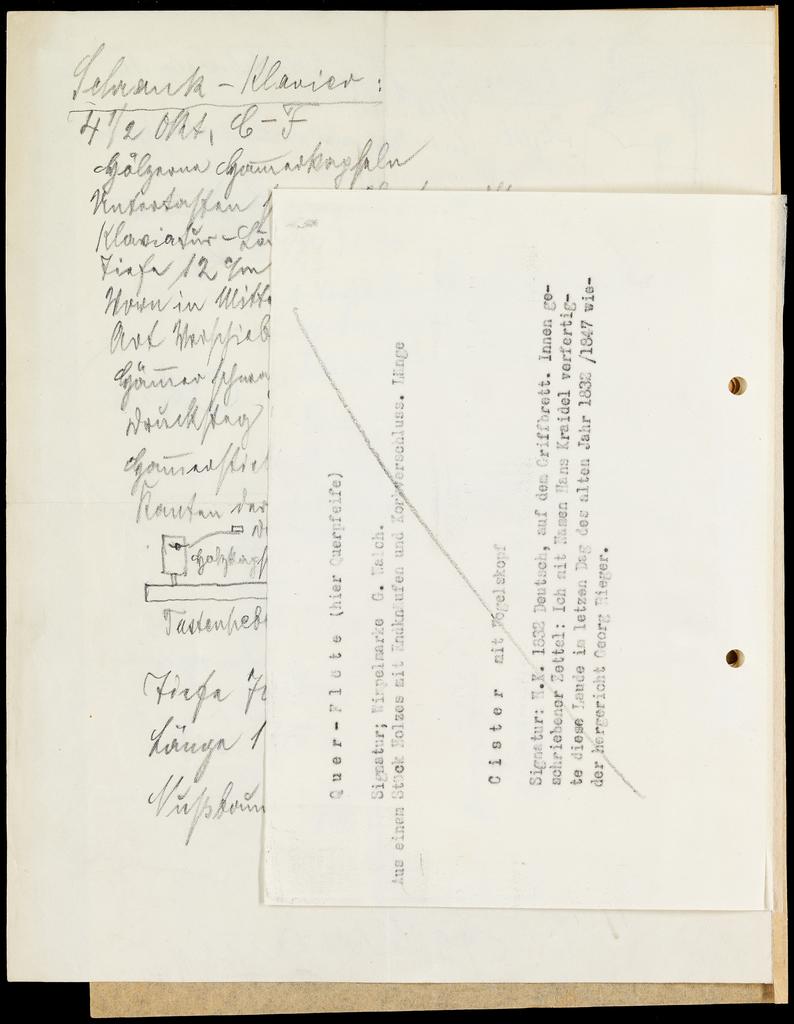 Schrank - Klavier :
4 1/2 Okt, C - F
Hölzerne Ham̅erkapseln
Untertasten
Klaviatur - Lä
Tiefe 12 c/m
Vorn in Mitte
Art Verschieb
Häm̅er schwa
Drucksteg
Ham̅erstiel
Kanten der
Holzkaps
Tastenheb
Tiefe 7
Länge 1
Nußbaum
Quer-Flöte (hier Querpfeife)
Signatur; Wimpelmarke G. Walch.
Aus einem Stück Holzes mit Endknäufen und Korkverschluss. Länge
Cister mit Vogelskopf
Signatur: H.K. 1832 Deutsch, auf dem Griffbrett. Innen ge-
schriebener Zettel: Ich mit Namen Hans Kraidel verfertig-
te diese Laude im letzen Dag des alten Jahr 1832 /1847 wie-
der hergericht Georg Rieger.